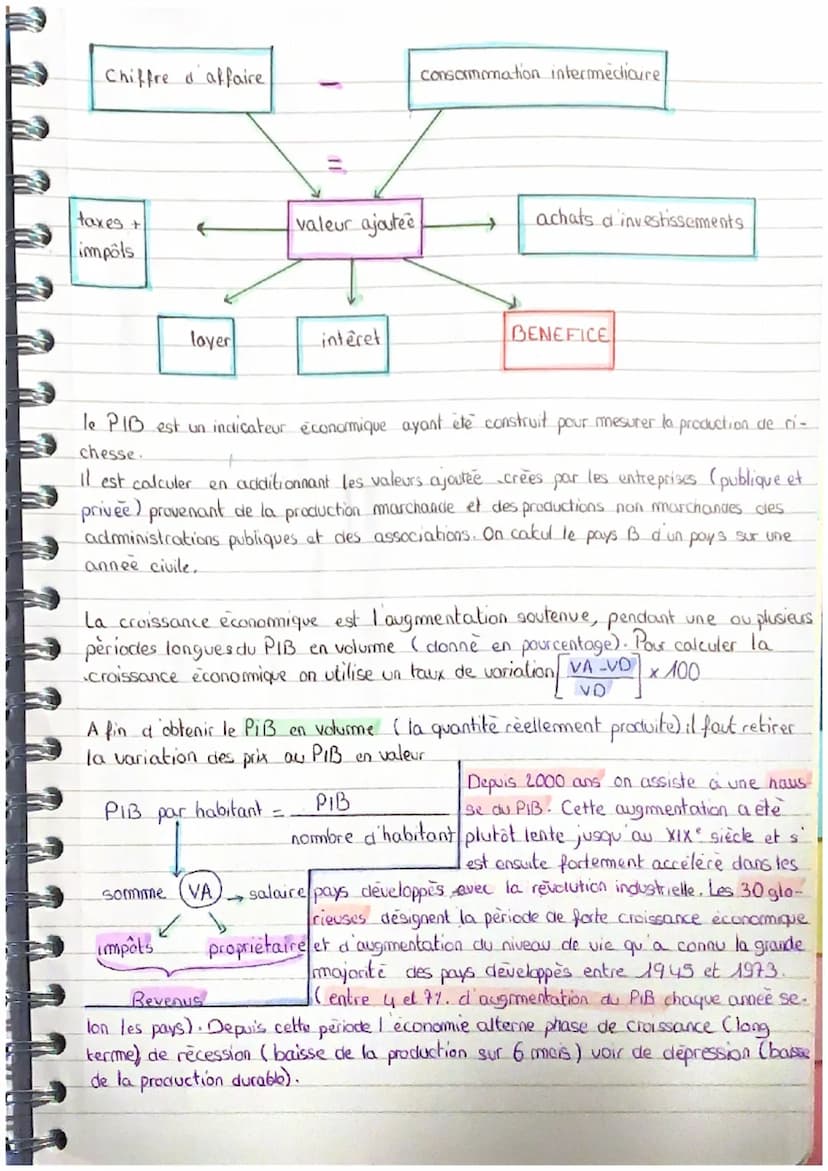 Chiffre d'affaire - consommation intermédiaire
=
taxes + impôls
valeur ajoutée
achats d'investissements
loyer
intêret
BENEFICE
le PIB est un indicateur économique ayant été construit pour mesurer la production de ri-
chesse.
Il est calculer en additionnant les valeurs ajoutée crées par les entreprises (publique et
privée) provenant de la production marchande et des productions non marchandes des
administrations publiques et des associations. On calcul le pays B d'un pays sur une
année civile.
La croissance économique est l'augmentation soutenue, pendant une ou plusieurs
périodes longues du PIB en volume (donné en pourcentage). Pour calculer la
croissance économique on utilise un taux de variation [VA-VD / VD] x 100
Afin d'obtenir le PIB en volume (la quantité réellement produite) il faut retirer
la variation des prix au PIB en valeur
PIB par habitant = PIB / nombre d'habitant
somme VA → salaire
impôts
propriétaire
Revenus
Depuis 2000 ans on assiste à une haus-
se du PIB. Cette augmentation a été
plutôt lente jusqu'au XIXe siècle et s'
est ensuite fortement accéléré dans les
pays développés avec la révolution industrielle. Les 30 glo-
rieuses désignent la période de forte croissance économique
et d'augmentation du niveau de vie qu'a connu la grande
majorité des pays développés entre 1945 et 1973.
(entre 4 et 7%. d'augmentation du PIB chaque année se-
lon les pays). Depuis cette période l'économie alterne phase de croissance (long
terme) de récession (baisse de la production sur 6 mois) voir de dépression (baisse
de la production durable).